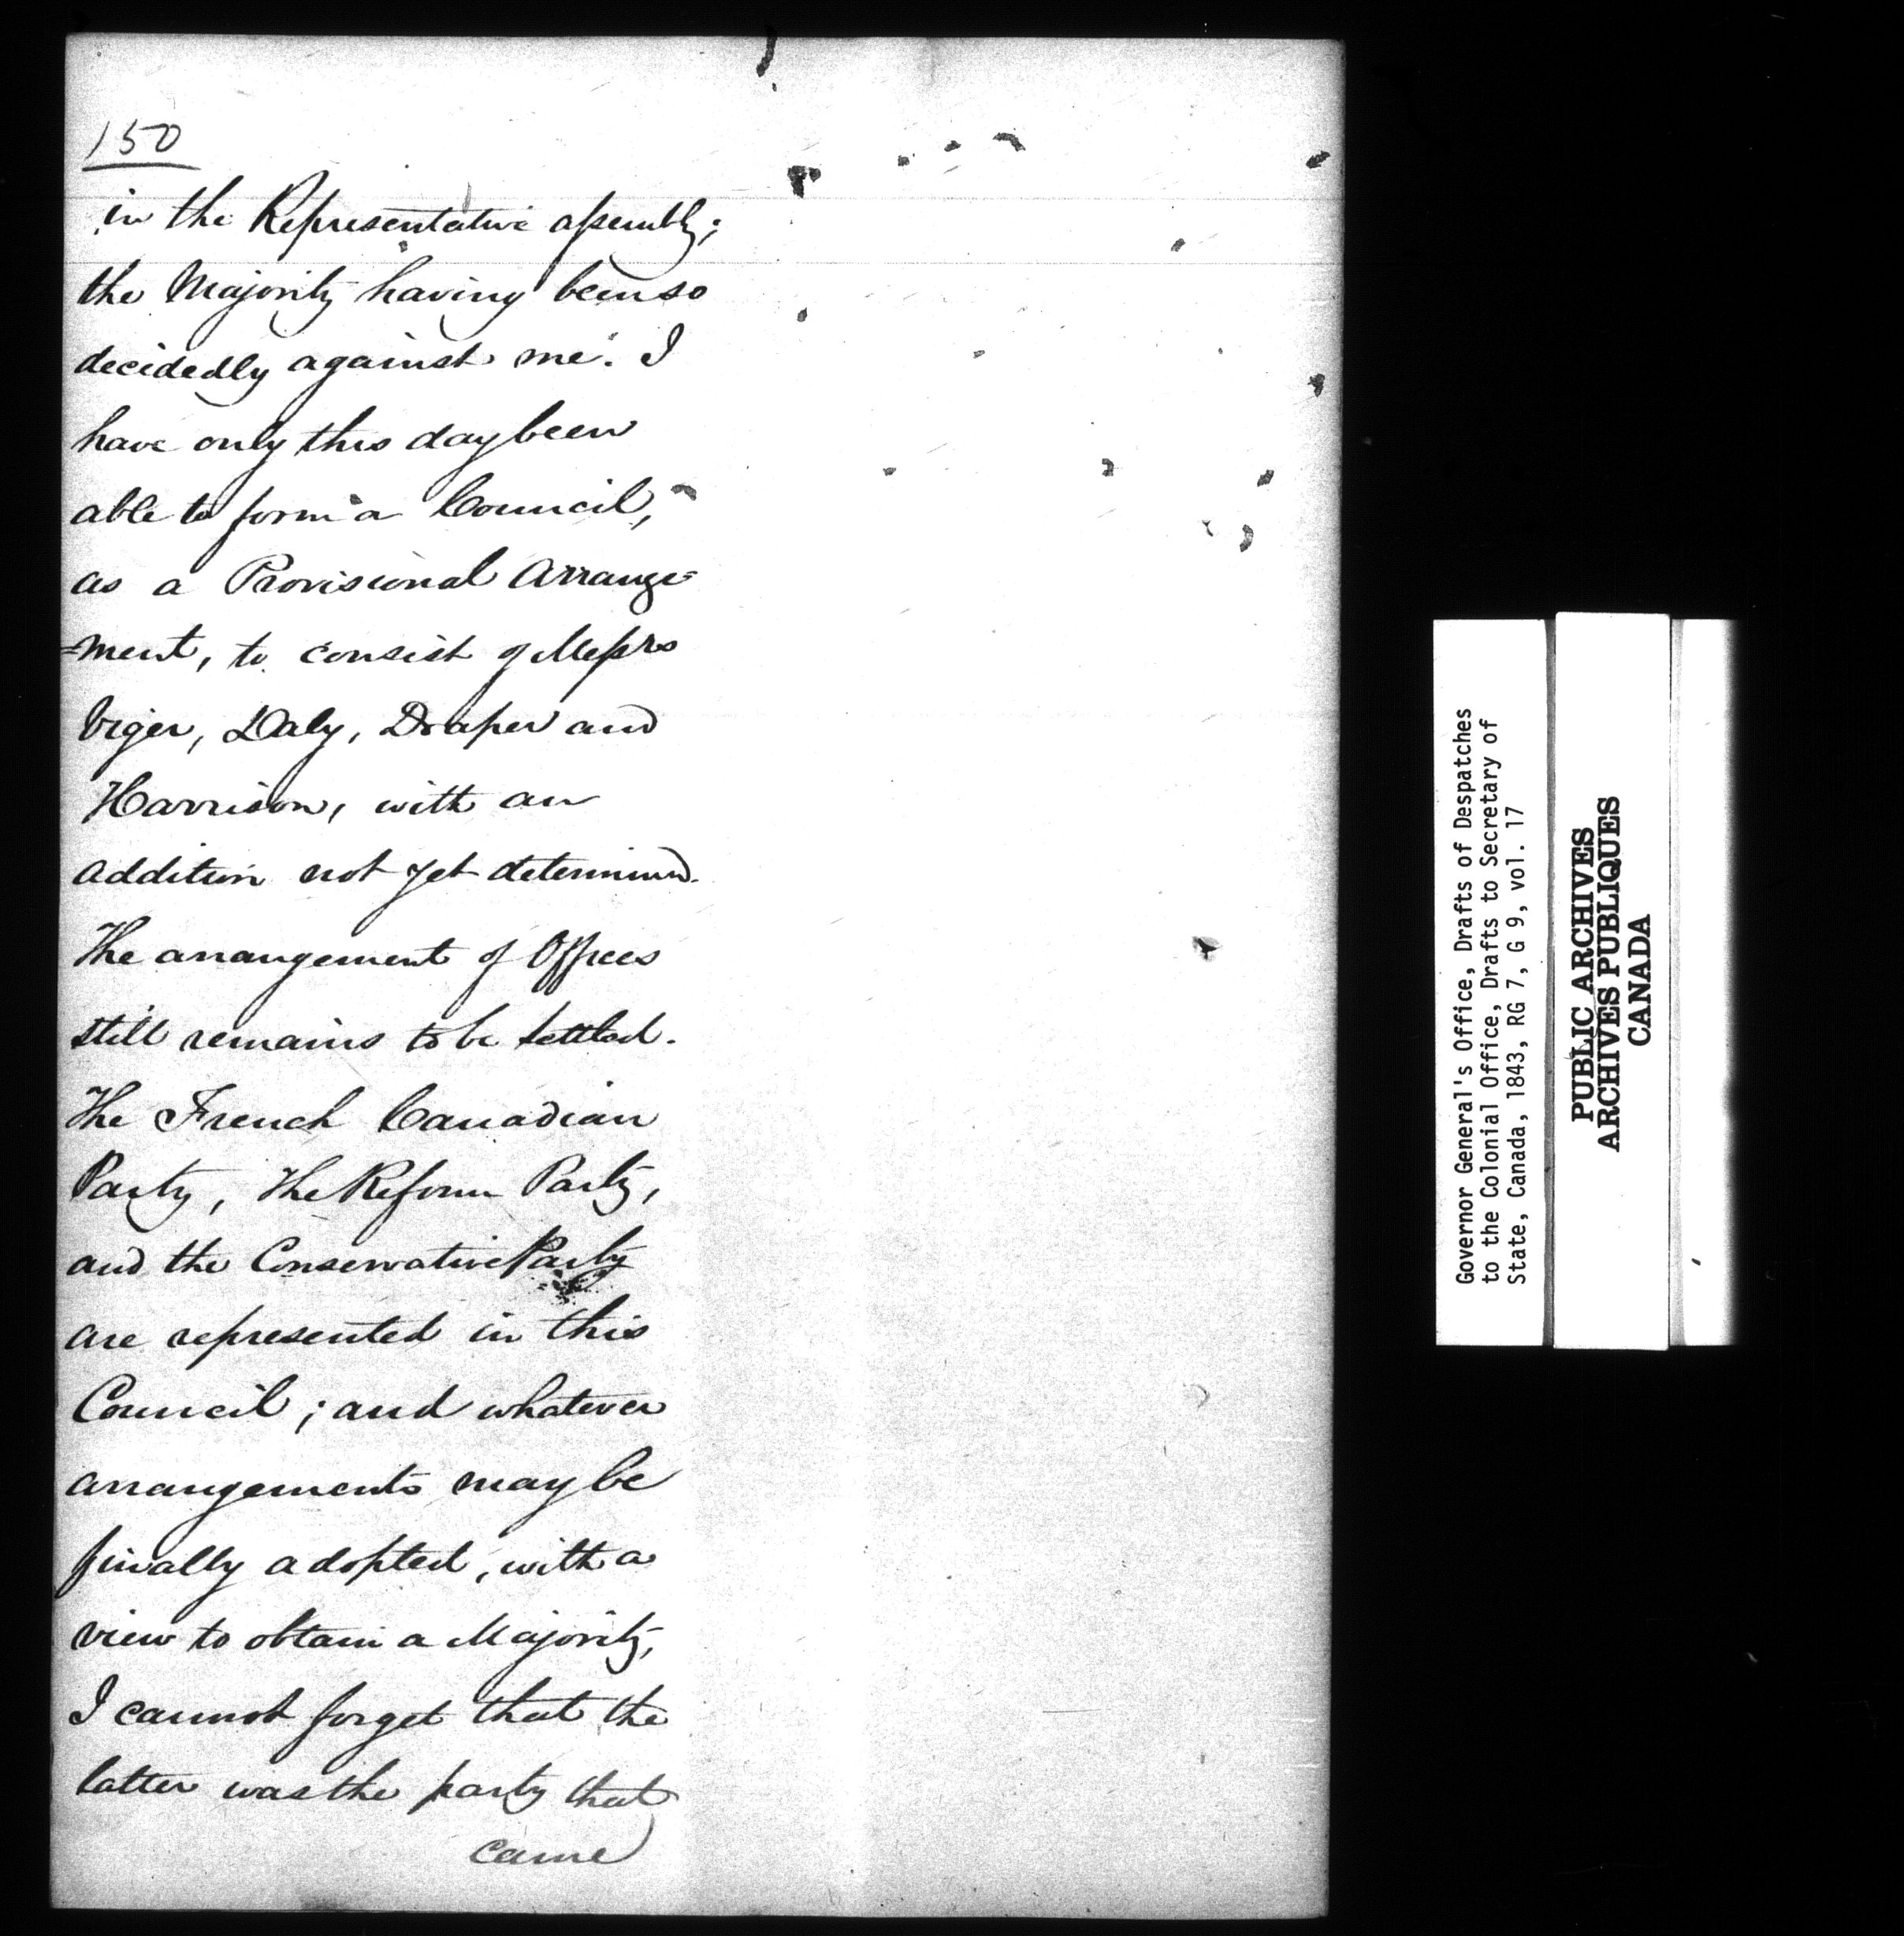 150
in the Representative assembly;
the Majority having been so
decidedly against me. I
have only this day been
able to form a Council,
as a Provisional Arrange=
=ment, to consist of Messrs
Viger, Daly, Draper and
Harrison, with an
addition not yet determined.
The arrangement of Offices
still remains to be settled.
The French Canadian
Party, The Reform Party,
and the Conservative Party
are represented in this
Council; and whatever
arrangements may be
finally adopted, with a
view to obtain a Majority,
I cannot forget that the
latter was the party that
came
Governor General's Office, Drafts of Despatches
to the Colonial Office, Drafts to Secretary of
State, Canada, 1843, RG 7, G 9, vol. 17
PUBLIC ARCHIVES
ARCHIVES PUBLIQUES
CANADA